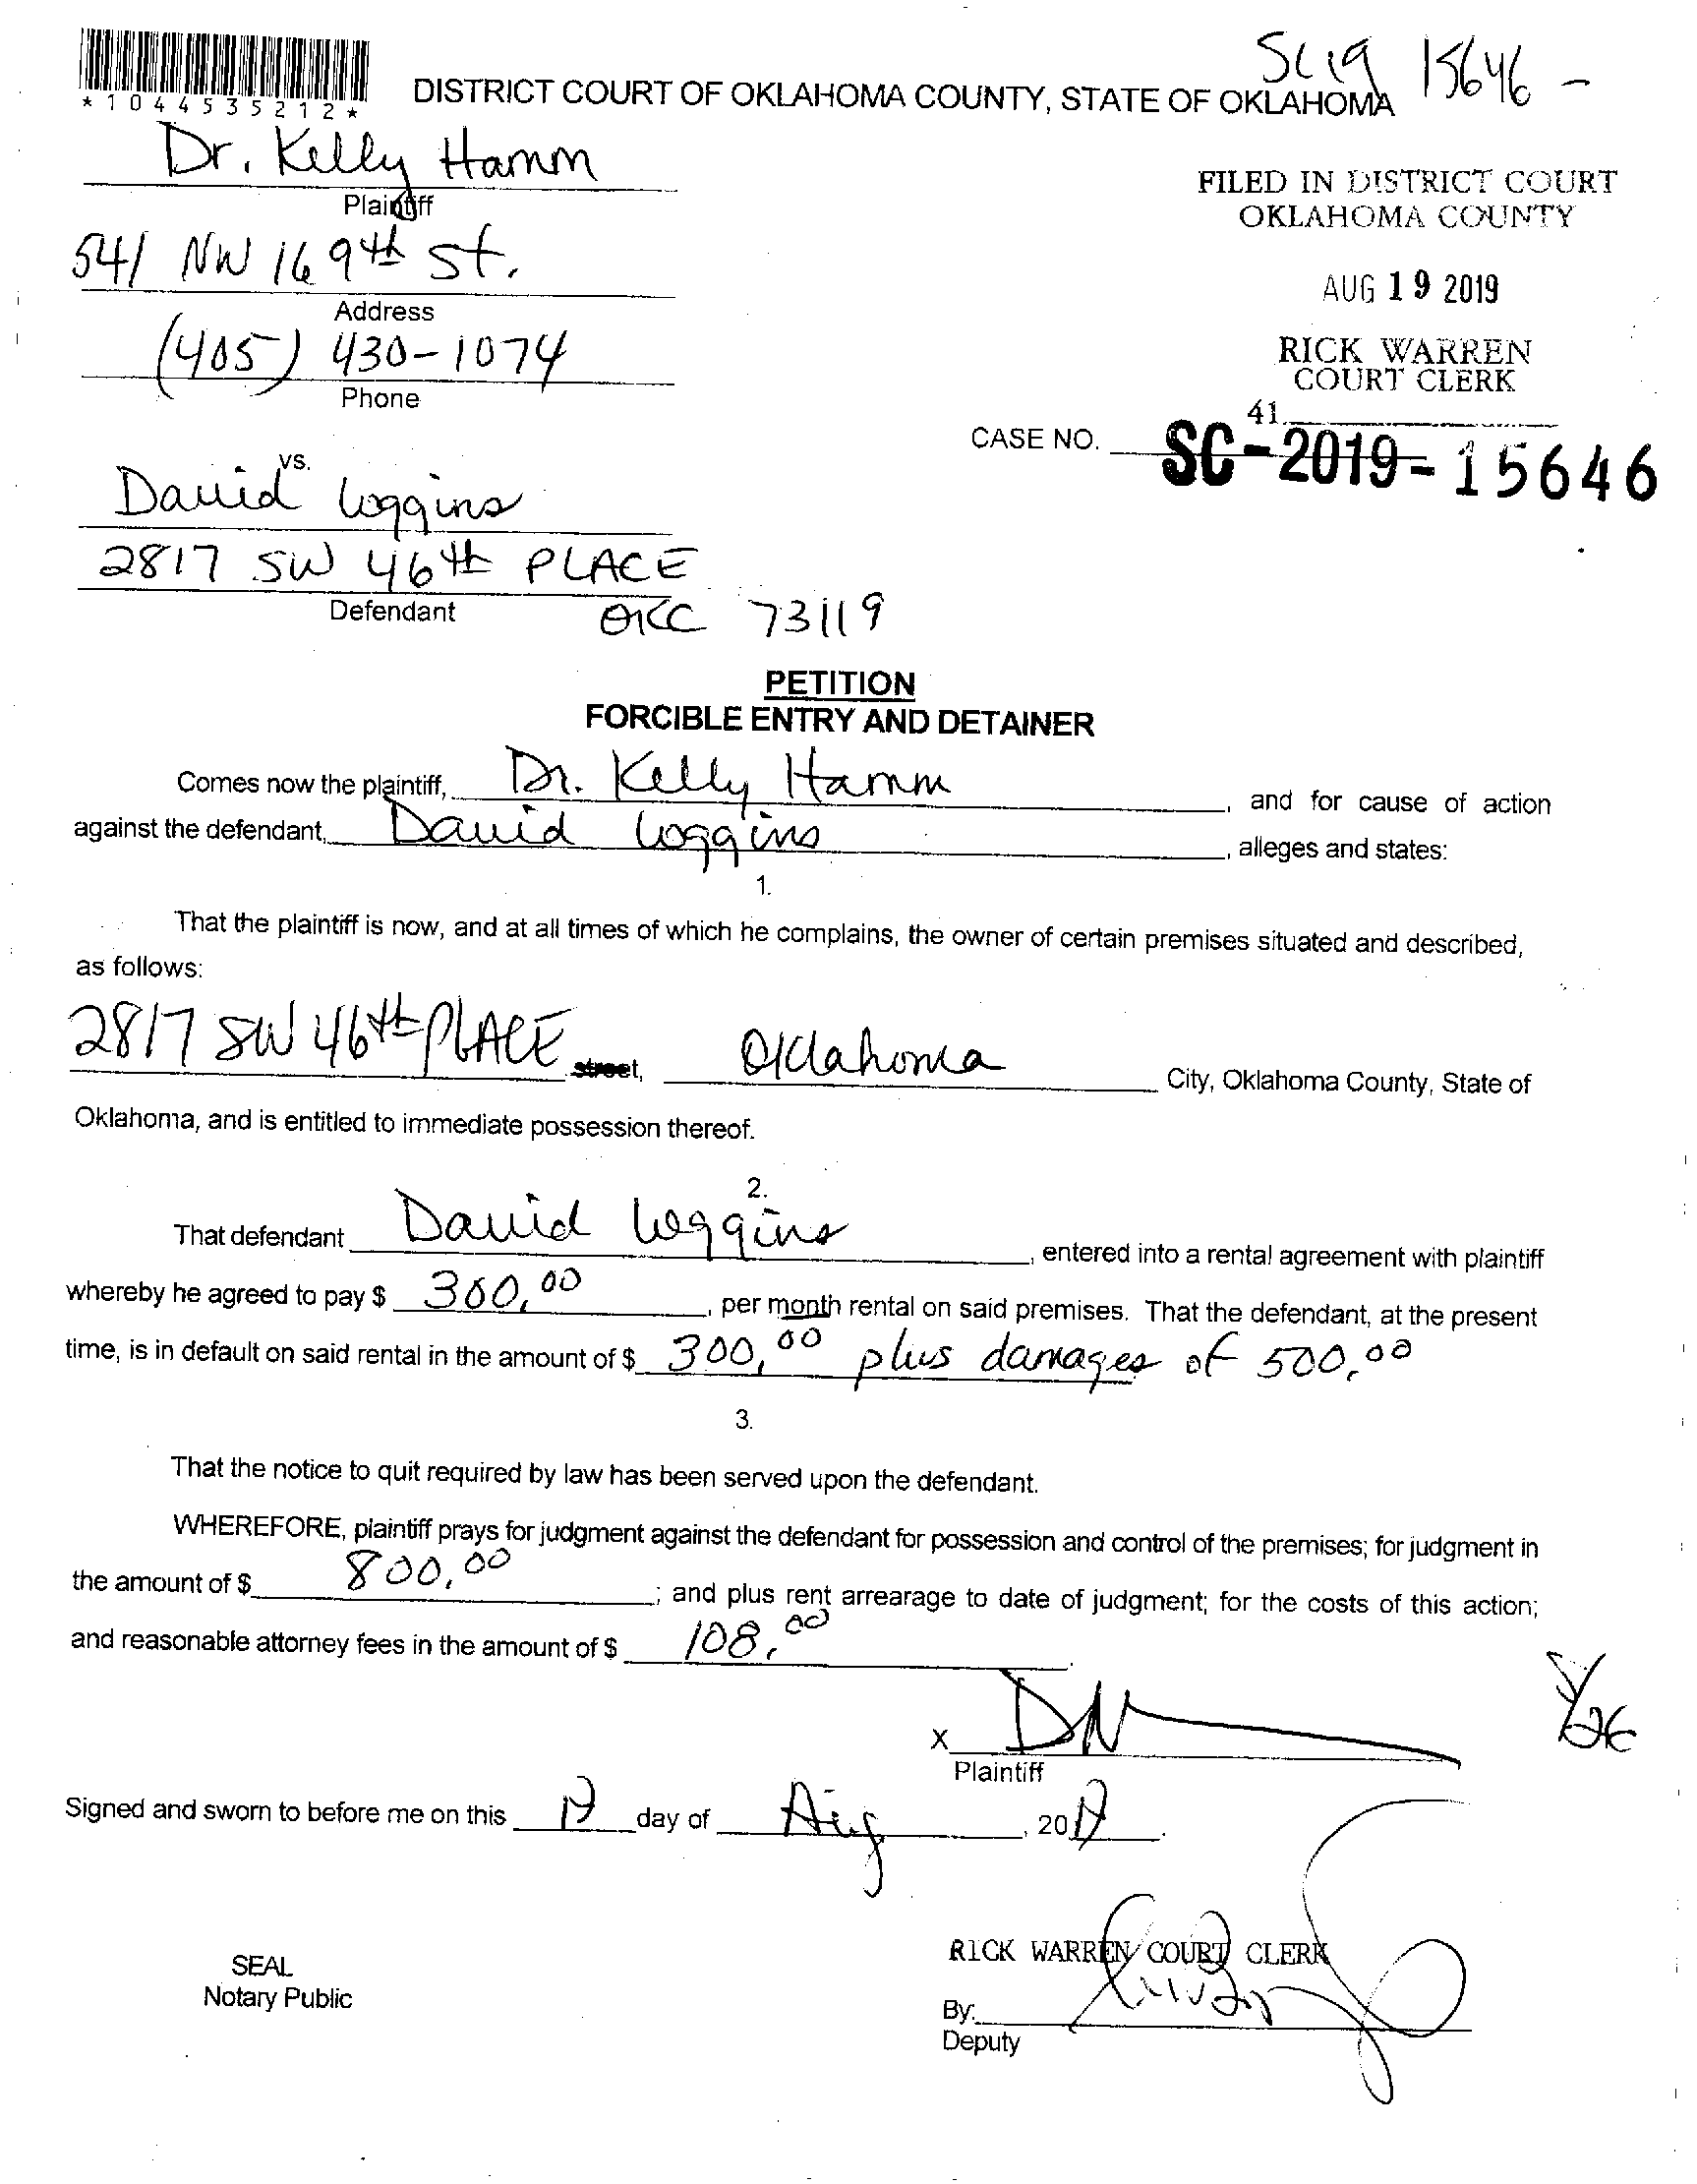 SC19 15646 -
*1044535212*
DISTRICT COURT OF OKLAHOMA COUNTY, STATE OF OKLAHOMA
Dr. Kelly Hamm
Plaintiff
541 NW 169th St.
Address
(405) 430-1074
Phone
FILED IN DISTRICT COURT
OKLAHOMA COUNTY
AUG 19 2019
RICK WARREN
COURT CLERK
41
CASE NO. SC-2019-15646
vs.
David Loggins
2817 SW 46th PLACE
Defendant
OKC 73119
PETITION
FORCIBLE ENTRY AND DETAINER
Comes now the plaintiff, Dr. Kelly Hamm, and for cause of action
against the defendant, David Loggins, alleges and states:
1.
That the plaintiff is now, and at all times of which he complains, the owner of certain premises situated and described,
as follows:
2817 SW 46th PLACE street, Oklahoma City, Oklahoma County, State of
Oklahoma, and is entitled to immediate possession thereof.
2.
That defendant David Loggins, entered into a rental agreement with plaintiff
whereby he agreed to pay $ 300.00, per month rental on said premises. That the defendant, at the present
time, is in default on said rental in the amount of $ 300.00 plus damages of 500.00
3.
That the notice to quit required by law has been served upon the defendant.
WHEREFORE, plaintiff prays for judgment against the defendant for possession and control of the premises; for judgment in
the amount of $ 800.00; and plus rent arrearage to date of judgment; for the costs of this action;
and reasonable attorney fees in the amount of $ 108.00.
X
Plaintiff
Signed and sworn to before me on this 19 day of Aug, 2019.
RICK WARREN COURT CLERK
SEAL
Notary Public
By:
Deputy